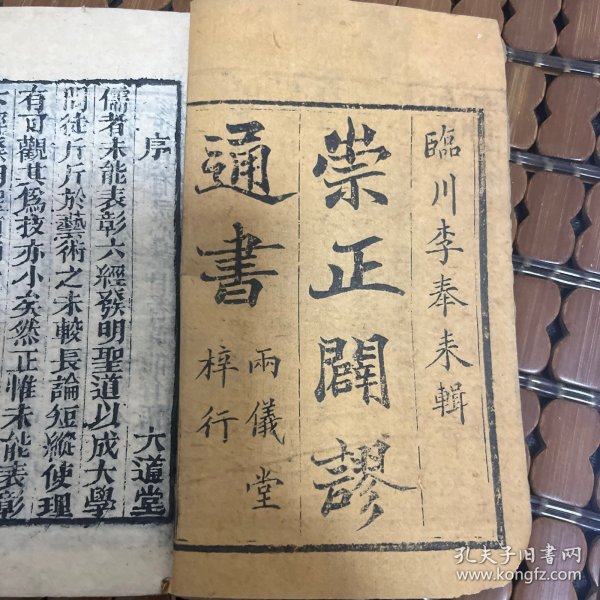 臨川李奉来輯
崇正闢謬
通書
兩儀堂
梓行
序
六道堂
儒者未能表彰六經發明聖道以成大學
問徒斤斤於藝術之末較長論短縱使理
有可觀其為技亦小矣然正惟未能表彰
孔夫子旧书网
www.kongfz.com